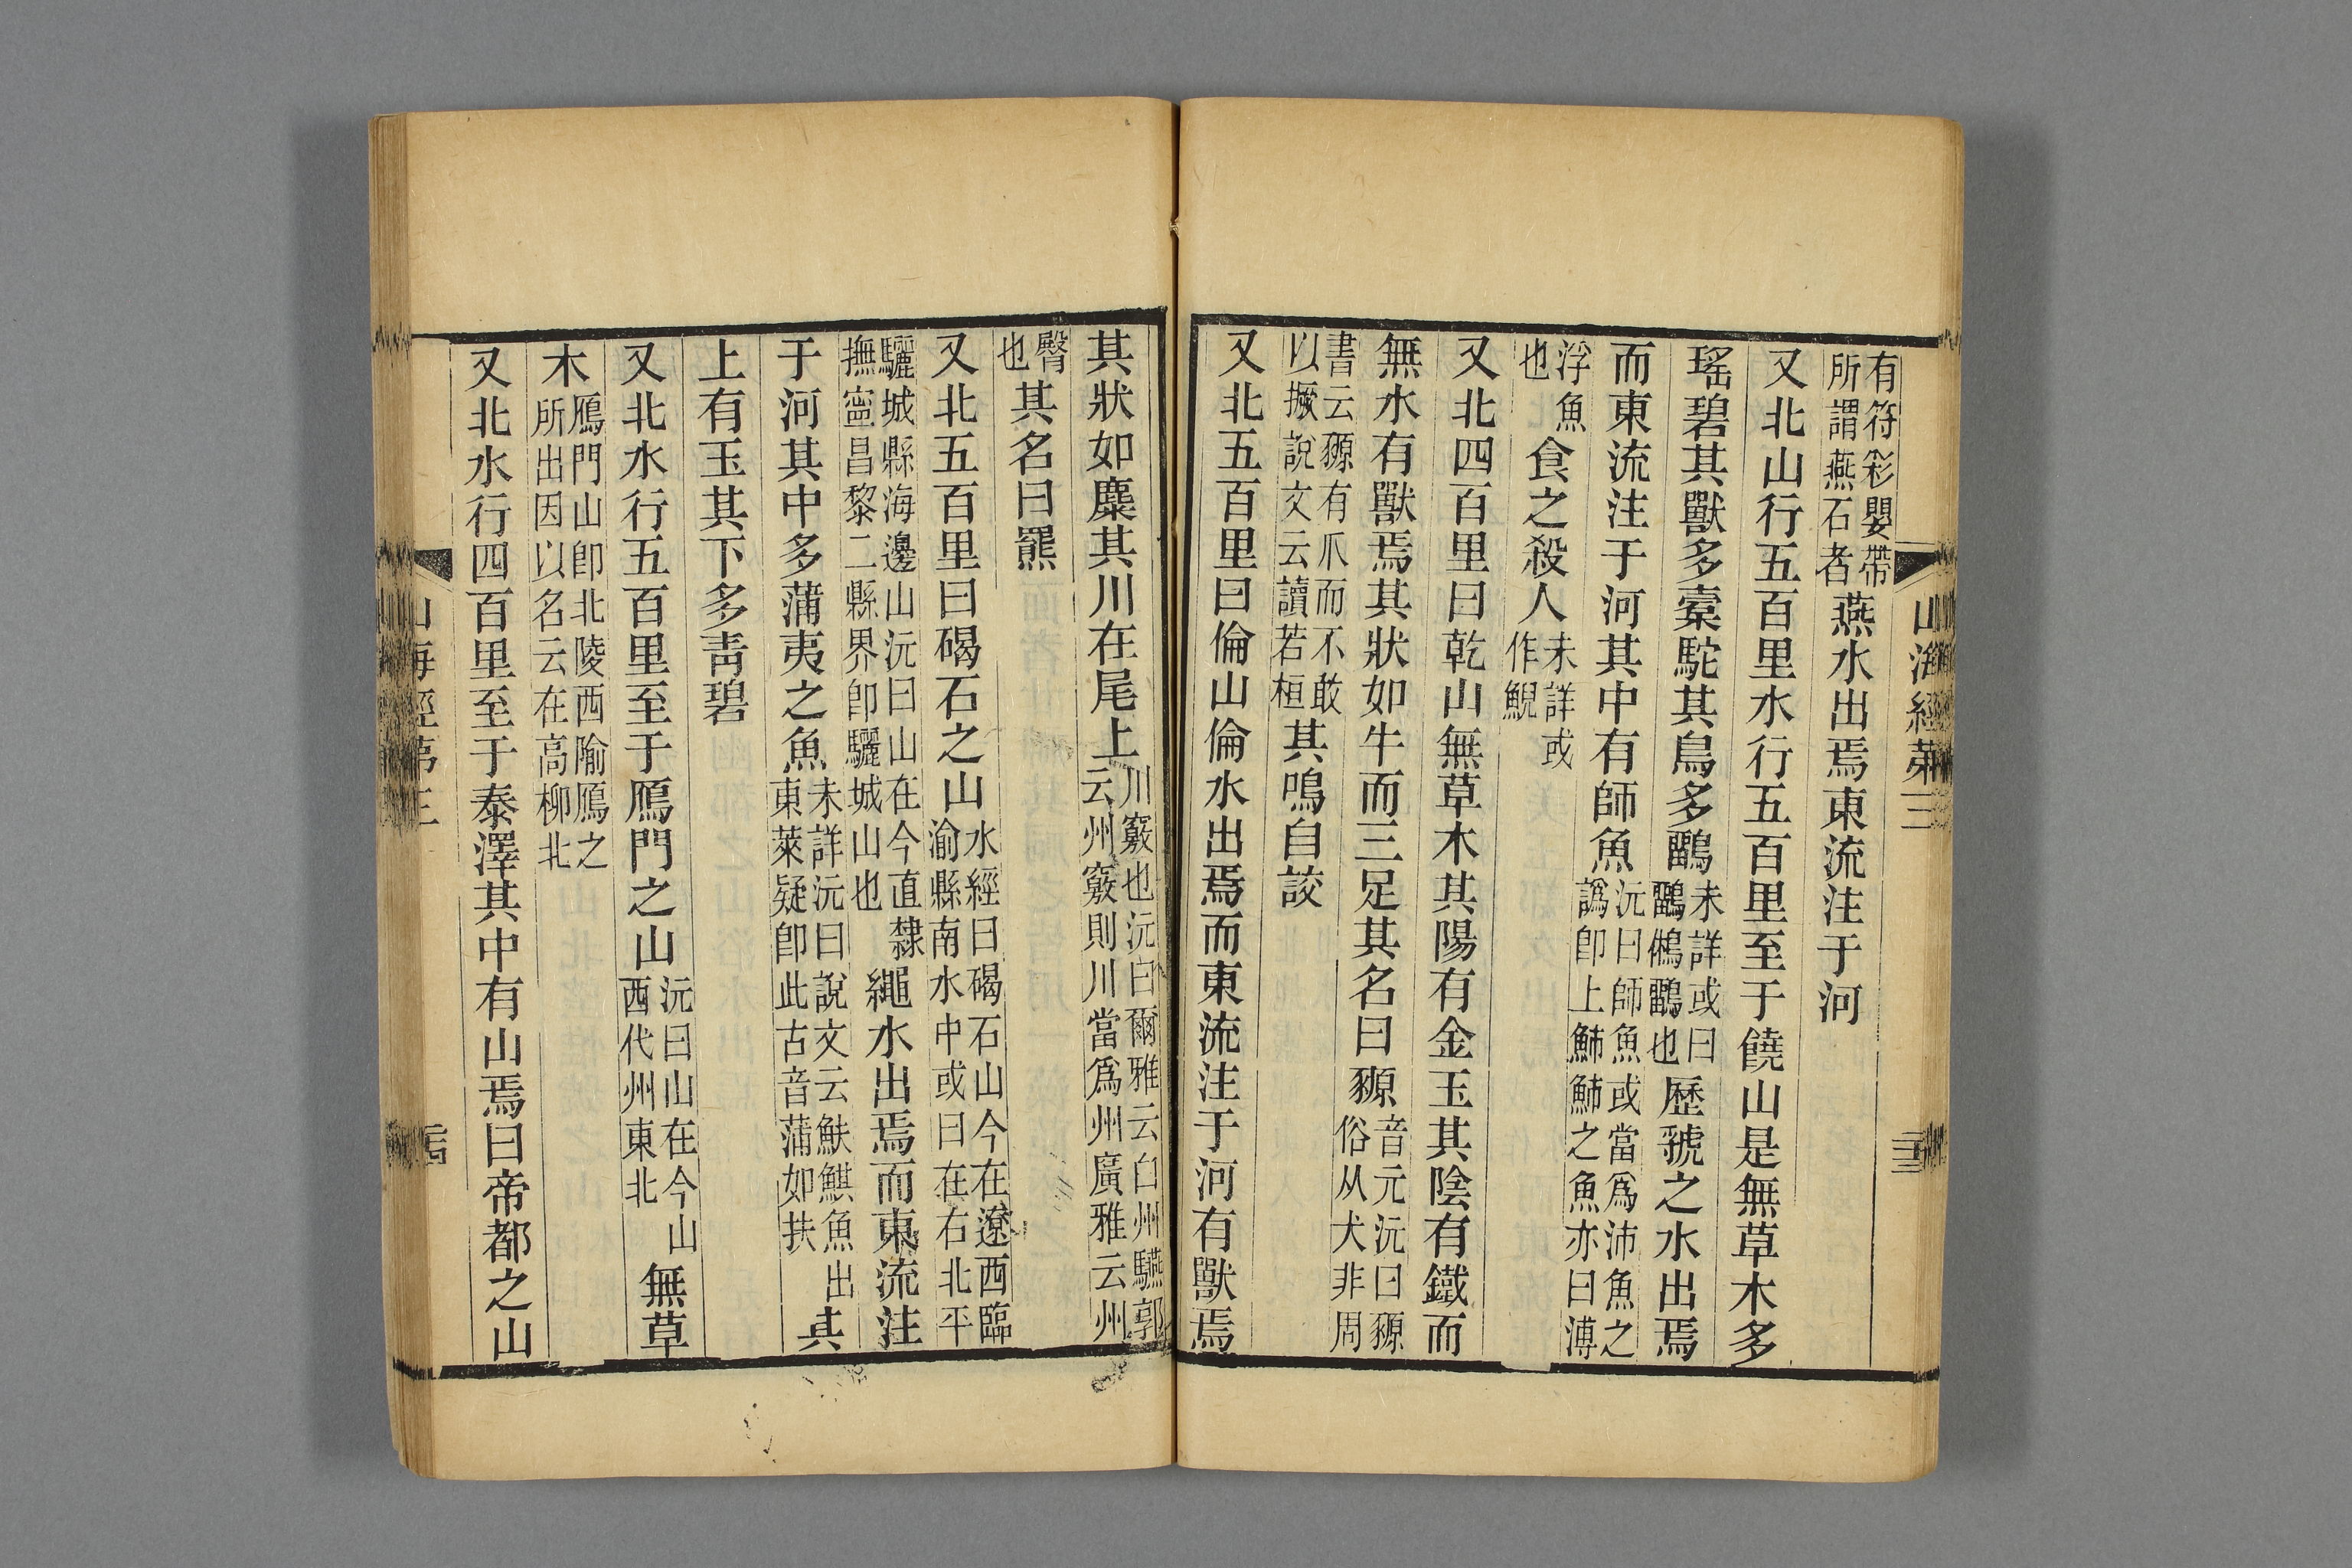 有符彩嬰帶所謂燕石者燕水出焉東流注于河
又北山行五百里水行五百里至于饒山是無草木多
瑤碧其獸多橐駝其鳥多鶹未詳或曰鶹鵂鶹也歷虢之水出焉
而東流注于河其中有師魚沅曰師魚或當爲沛魚之譌卽上䰽䰽之魚亦曰溥
浮魚也食之殺人未詳或作鯢
又北四百里曰乾山無草木其陽有金玉其陰有鐵而
無水有獸焉其狀如牛而三足其名曰獂音元沅曰獂俗从犬非周
書云豲有爪而不敢以撅說文云讀若桓其鳴自詨
又北五百里曰倫山倫水出焉而東流注于河有獸焉
山海經第三
其狀如麋其川在尾上川竅也沅曰爾雅云白州驠郭云州竅則川當爲州廣雅云州
臀也其名曰羆
又北五百里曰碣石之山水經曰碣石山今在遼西臨渝縣南水中或曰在右北平
驪城縣海邊山沅曰山在今直隸撫寧昌黎二縣界卽驪城山也繩水出焉而東流注
于河其中多蒲夷之魚未詳沅曰說文云䱐䱌魚出東萊疑卽此古音蒲如扶其
上有玉其下多靑碧
又北水行五百里至于鴈門之山沅曰山在今山西代州東北無草
木鴈門山卽北陵西隃鴈之所出因以名云在高柳北
又北水行四百里至于泰澤其中有山焉曰帝都之山
山海經第三